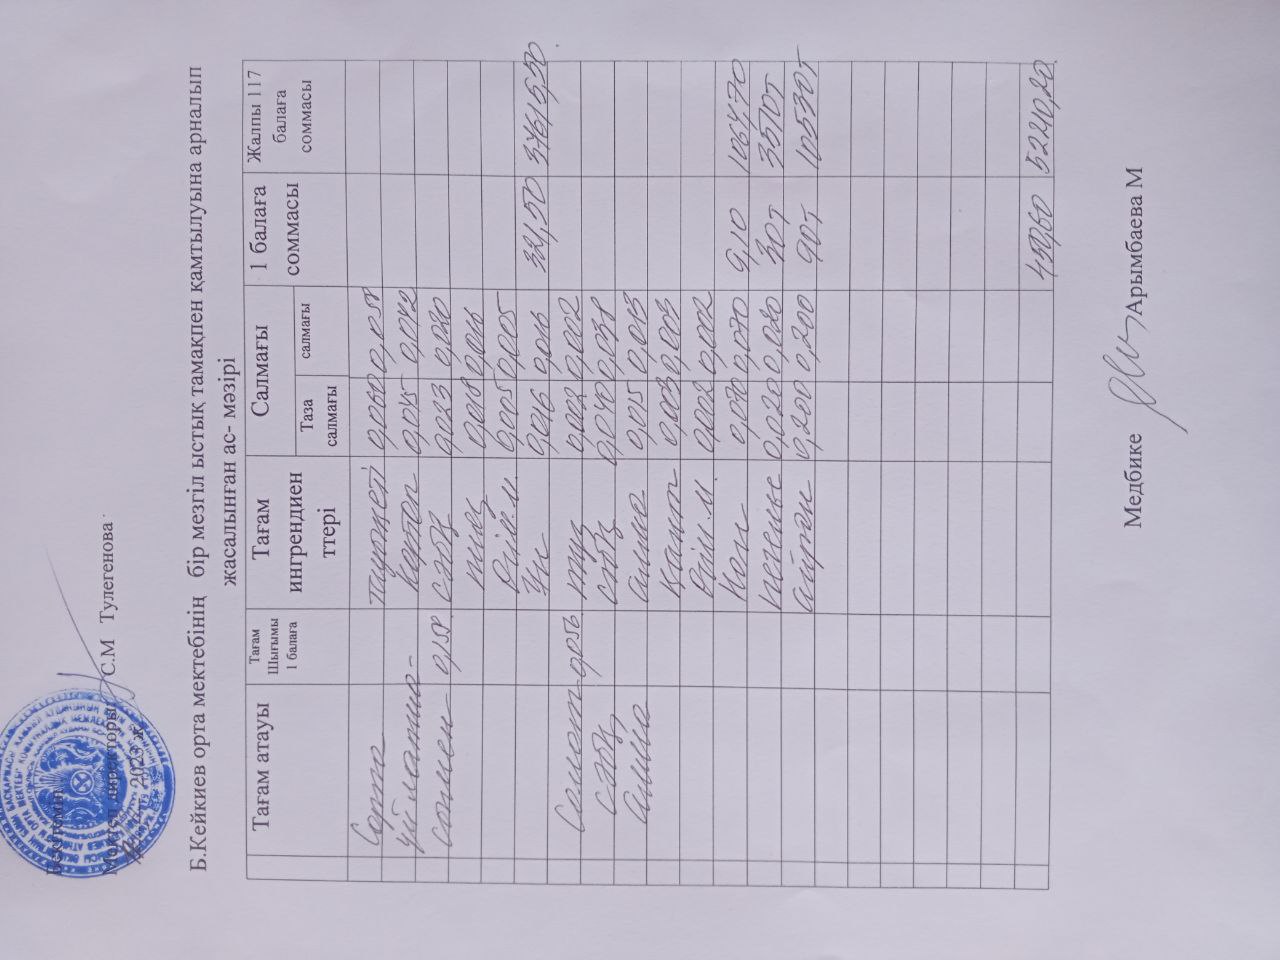 Бекітемін
Мектеп директоры С.М Тулегенова
2023 ж
Б.Кейкиев орта мектебінің бір мезгіл ыстық тамақпен қамтылуына арналып
жасалынған ас- мәзірі
Тағам атауы
Тағам Шығымы 1 балаға
Тағам ингрендиенттері
Салмағы
Таза салмағы
салмағы
1 балаға соммасы
Жалпы 117 балаға соммасы
Сорпа 0,060 0,058
үй лапша- картоп 0,015
сомен- 0,158 сәбіз 0,023 0,020
пияз 0,018 0,016
Өсім.м. 0,005 0,005
Ұн 0,016 0,016
Салат 0,056 тұз 0,002 0,002
сәбіз сәбіз 0,040 0,038
алма алма 0,015 0,013
Қант 0,003 0,003
Өсім.м. 0,002 0,002
Нан 0,070 0,070 9,10 1064,70
печенье 0,020 0,020 30т 3510т
айран 0,200 0,200 90т 10530т
52240,20
Медбике Арымбаева М